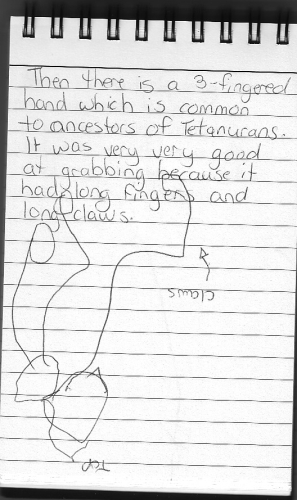 Then there is a 3-fingered
hand which is common
to ancestors of Tetanurans.
It was very very good
at grabbing because it
had long fingers and
long claws.
claws
Top